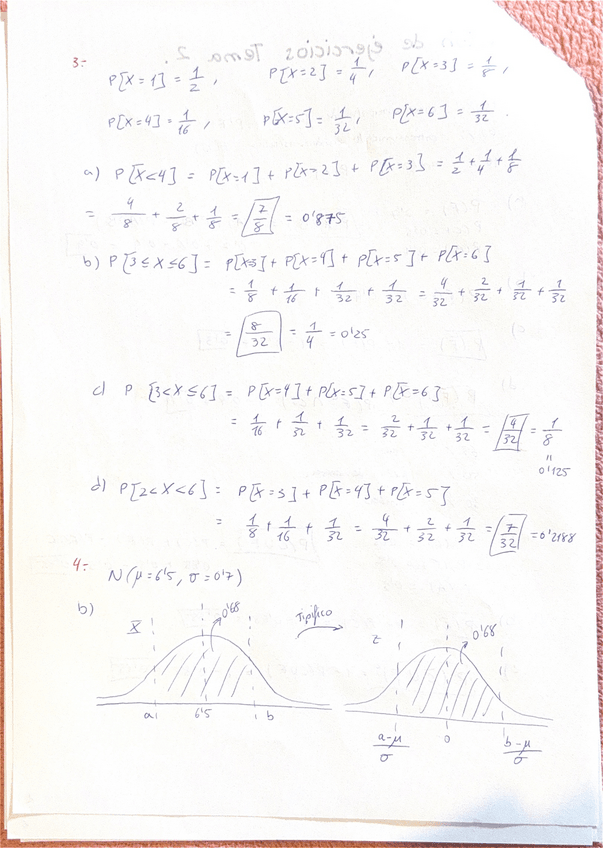 3.-
P[X=1] = 1/2 , P[X=2] = 1/4 , P[X=3] = 1/8 ,
P[X=4] = 1/16 , P[X=5] = 1/32 , P[X=6] = 1/32 .
a) P[X<4] = P[X=1] + P[X=2] + P[X=3] = 1/2 + 1/4 + 1/8
= 4/8 + 2/8 + 1/8 = 7/8 = 0'875
b) P[3≤X≤6] = P[X=3] + P[X=4] + P[X=5] + P[X=6]
= 1/8 + 1/16 + 1/32 + 1/32 = 4/32 + 2/32 + 1/32 + 1/32
= 8/32 = 1/4 = 0'25
c) P [3<X≤6] = P[X=4] + P[X=5] + P[X=6]
= 1/16 + 1/32 + 1/32 = 2/32 + 1/32 + 1/32 = 4/32 = 1/8
"
0'125
d) P[2<X<6] = P[X=3] + P[X=4] + P[X=5]
= 1/8 + 1/16 + 1/32 = 4/32 + 2/32 + 1/32 = 7/32 = 0'2188
4.-
N(μ=6'5, σ=0'7)
b) X 0'68 Tipifico z 0'68
a 6'5 b
a-μ/σ 0 b-μ/σ